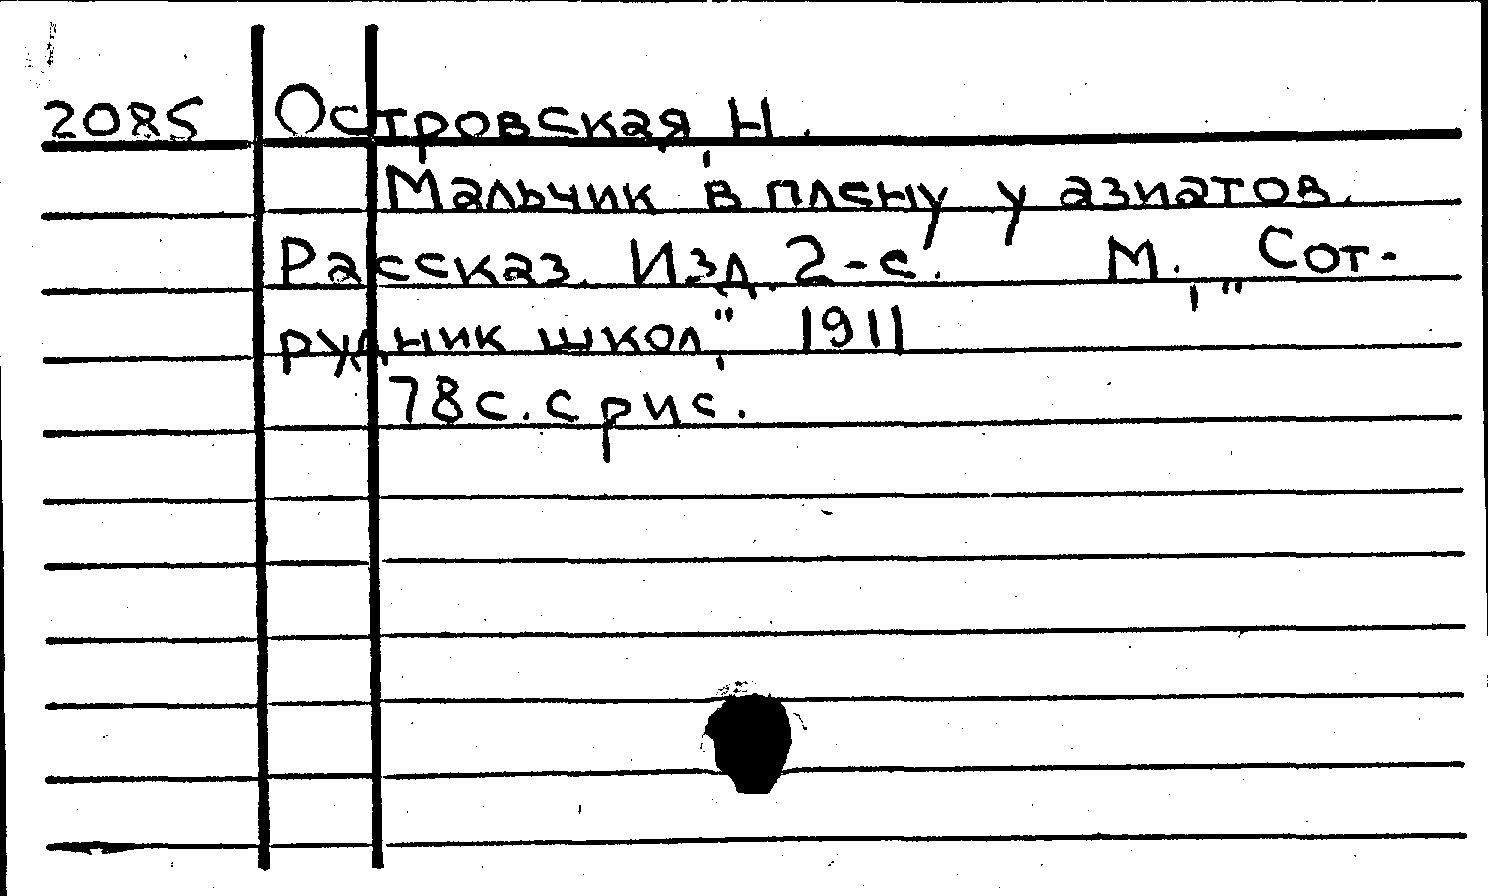 2085 Островская, Н.
Мальчик в плену у азиатов.
Рассказ. Изд. 2-е. М., "Сот-
рудник школ", 1911
78с. с рис.